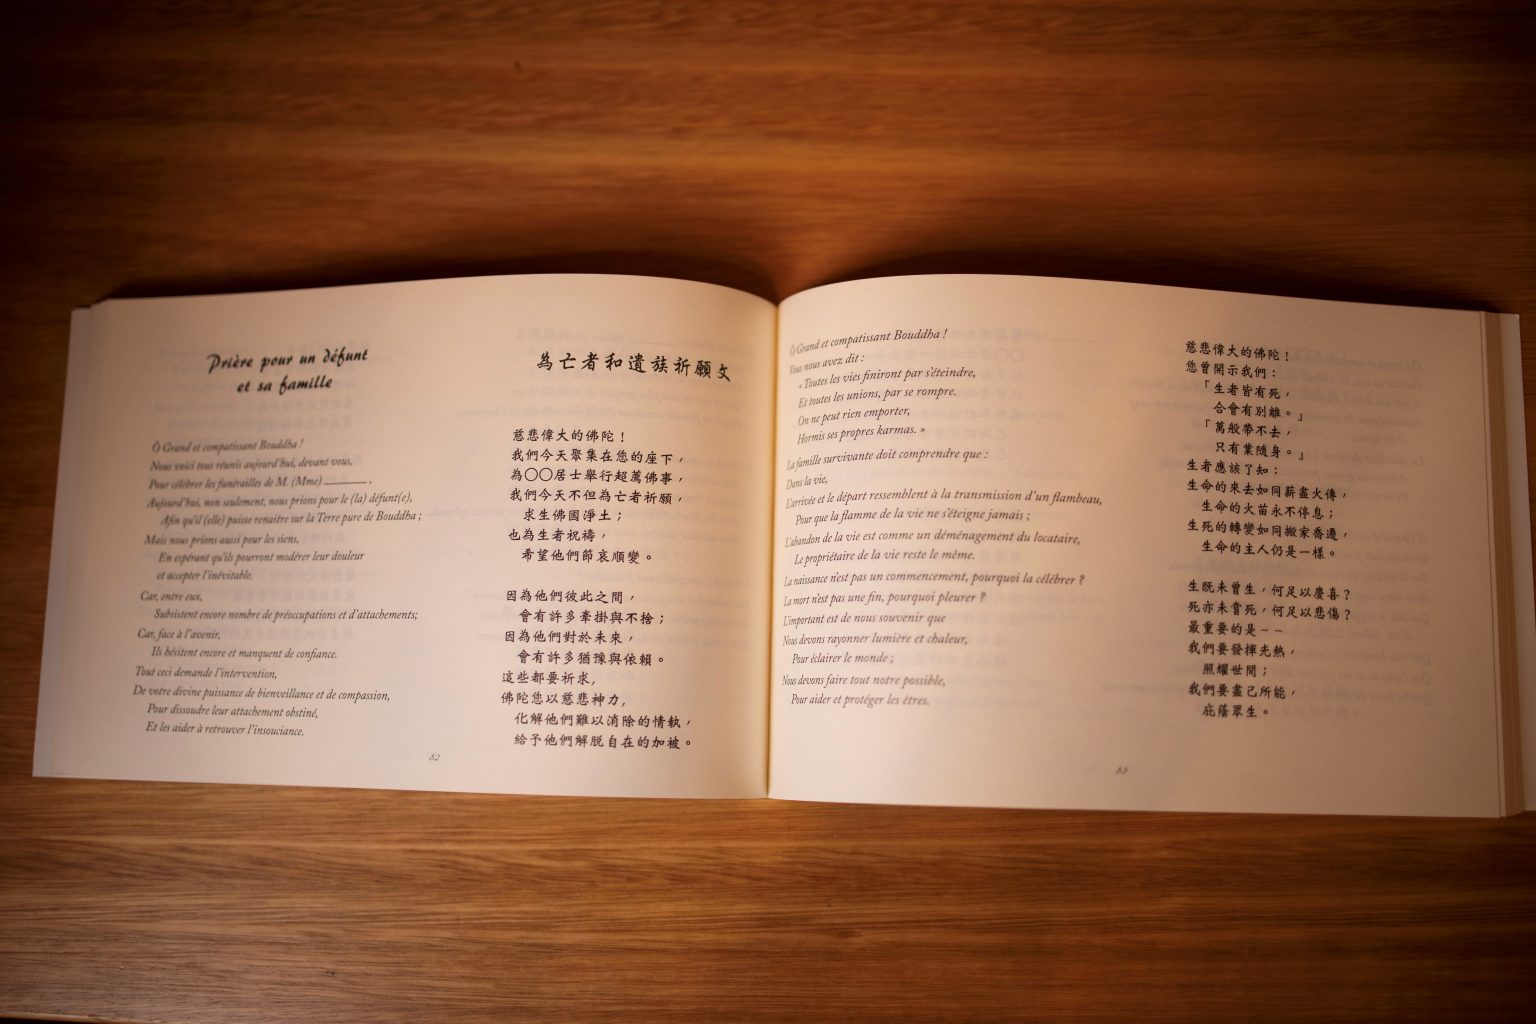 Prière pour un défunt
et sa famille
Ô Grand et compatissant Bouddha !
Nous voici tous réunis aujourd'hui, devant vous,
Pour célébrer les funérailles de M. (Mme) ________ ,
Aujourd'hui, non seulement, nous prions pour le (la) défunt(e),
Afin qu'il (elle) puisse renaître sur la Terre pure de Bouddha ;
Mais nous prions aussi pour les siens,
En espérant qu'ils pourront modérer leur douleur
et accepter l'inévitable.
Car, entre eux,
Subsistent encore nombre de préoccupations et d'attachements;
Car, face à l'avenir,
Ils hésitent encore et manquent de confiance.
Tout ceci demande l'intervention,
De votre divine puissance de bienveillance et de compassion,
Pour dissoudre leur attachement obstiné,
Et les aider à retrouver l'insouciance.
為亡者和遺族祈願文
慈悲偉大的佛陀！
我們今天聚集在您的座下，
為〇〇居士舉行超薦佛事，
我們今天不但為亡者祈願，
求生佛國淨土；
也為生者祝禱，
希望他們節哀順變。
因為他們彼此之間，
會有許多牽掛與不捨；
因為他們對於未來，
會有許多猶豫與依賴。
這些都要祈求，
佛陀您以慈悲神力，
化解他們難以消除的情執，
給予他們解脫自在的加被。
82
Ô Grand et compatissant Bouddha !
Vous nous avez dit :
« Toutes les vies finiront par s'éteindre,
Et toutes les unions, par se rompre.
On ne peut rien emporter,
Hormis ses propres karmas. »
La famille survivante doit comprendre que :
Dans la vie,
L'arrivée et le départ ressemblent à la transmission d'un flambeau,
Pour que la flamme de la vie ne s'éteigne jamais ;
L'abandon de la vie est comme un déménagement du locataire,
Le propriétaire de la vie reste le même.
La naissance n'est pas un commencement, pourquoi la célébrer ?
La mort n'est pas une fin, pourquoi pleurer ?
L'important est de nous souvenir que
Nous devons rayonner lumière et chaleur,
Pour éclairer le monde ;
Nous devons faire tout notre possible,
Pour aider et protéger les êtres.
慈悲偉大的佛陀！
您曾開示我們：
「生者皆有死，
合會有別離。」
「萬般帶不去，
只有業隨身。」
生者應該了知：
生命的來去如同薪盡火傳，
生命的火苗永不停息；
生死的轉變如同搬家喬遷，
生命的主人仍是一樣。
生既未曾生，何足以慶喜？
死亦未嘗死，何足以悲傷？
最重要的是－－
我們要發揮光熱，
照耀世間；
我們要盡己所能，
庇蔭眾生。
83